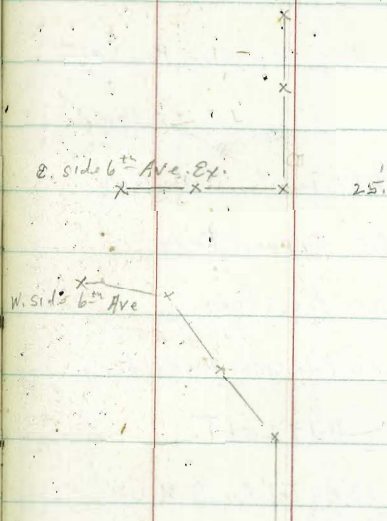 E. side 6th Ave. Ex.
25.
W. side 6th Ave